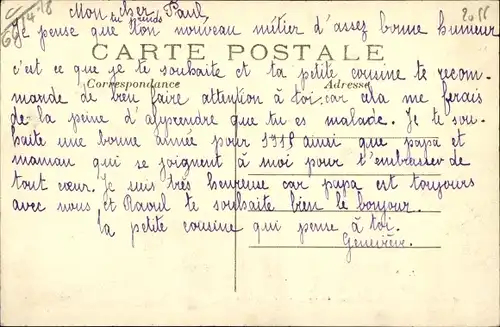 Mon cher Paul,
tu prends
Je pense que ton nouveau métier d'assez bonne humeur
CARTE POSTALE
c'est ce que je te souhaite et ta petite cousine te recom-
Correspondance Adresse
mande de bien faire attention à toi car cela me ferais
de la peine d'apprendre que tu es malade. Je te sou-
haite une bonne année pour 1915 ainsi que papa et
maman qui se joignent à moi pour t'embrasser de
tout cœur. Je suis très heureuse car papa est toujours
avec nous et Raoul te souhaite bien le bonjour.
la petite cousine qui pense à toi.
Geneviève.